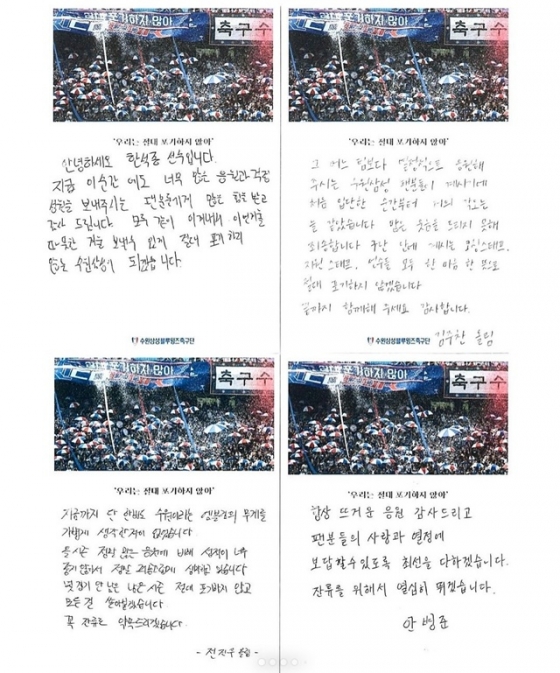 포기하지 많아
축구수
'우리는 절대 포기하지 않아'
안녕하세요 한석종 선수입니다.
지금 이순간 에도 너무 많은 응원과 걱정
보내주시는 팬분들에게 많은 힘을 받고
감사 드립니다. 모두 같이 이겨내서
따뜻한 겨울 보낼수 있게 절대 포기 하지
않는 수원삼성이 되겠습니다.
수원삼성블루윙즈축구단
포기하지 많아
축구수
'우리는 절대 포기하지 않아'
그 어느 팀보다 열정적으로 응원해
주시는 수원삼성 팬분들이 계시기에
처음 입단한 순간부터
많은 웃음을 드리지 못해
죄송합니다 구단 안에 계시는 코칭스태프,
지원 스태프, 선수들 모두 한 마음 한 뜻으로
절대 포기하지 않겠습니다
끝까지 함께해 주세요 감사합니다.
김주찬 올림
수원삼성블루윙즈축구단
포기하지 많아
축구수
'우리는 절대 포기하지 않아'
지금까지 단 한번도 수원이라는 엠블럼의 무게를
가볍게 생각한적이 없었습니다.
올시즌 정말 많은 응원에 비해 성적이 너무
좋지 않아서 정말
몇 경기 안 남은 시즌 절대 포기하지 않고
모든걸 쏟아붓겠습니다
꼭 잔류로 약속드리겠습니다.
- 전진우 올림 -
포기하지 많아
축구수
'우리는 절대 포기하지 않아'
항상 뜨거운 응원 감사드리고
팬분들의 사랑과 열정에
보답할수있도록 최선을 다하겠습니다.
잔류를 위해서 열심히 뛰겠습니다.
안병준